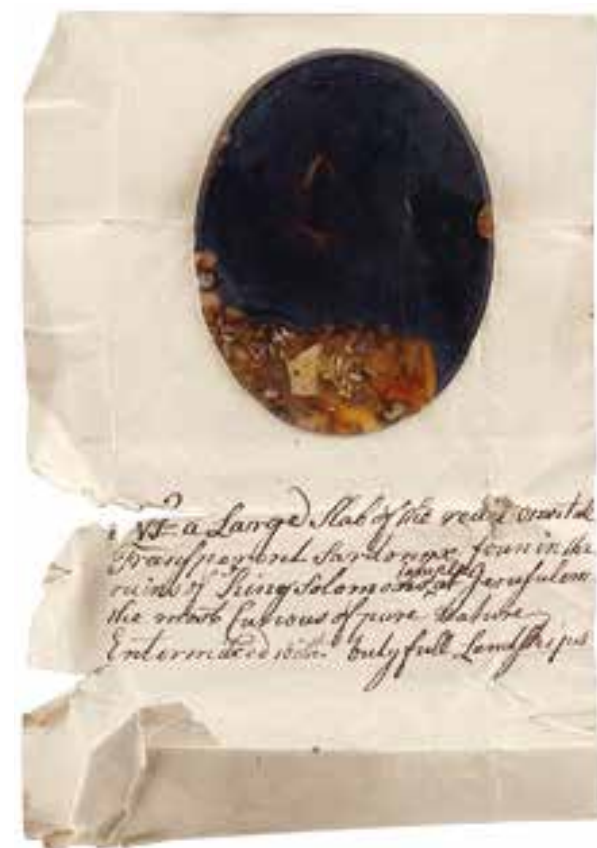 N? a Large Slab of the reail orientel
Transperent Sardonax foun in the
ruins of King Solomons temple at Jerusulem
the most Curious of pure Nature
Entermaxed with butyfull Landskips